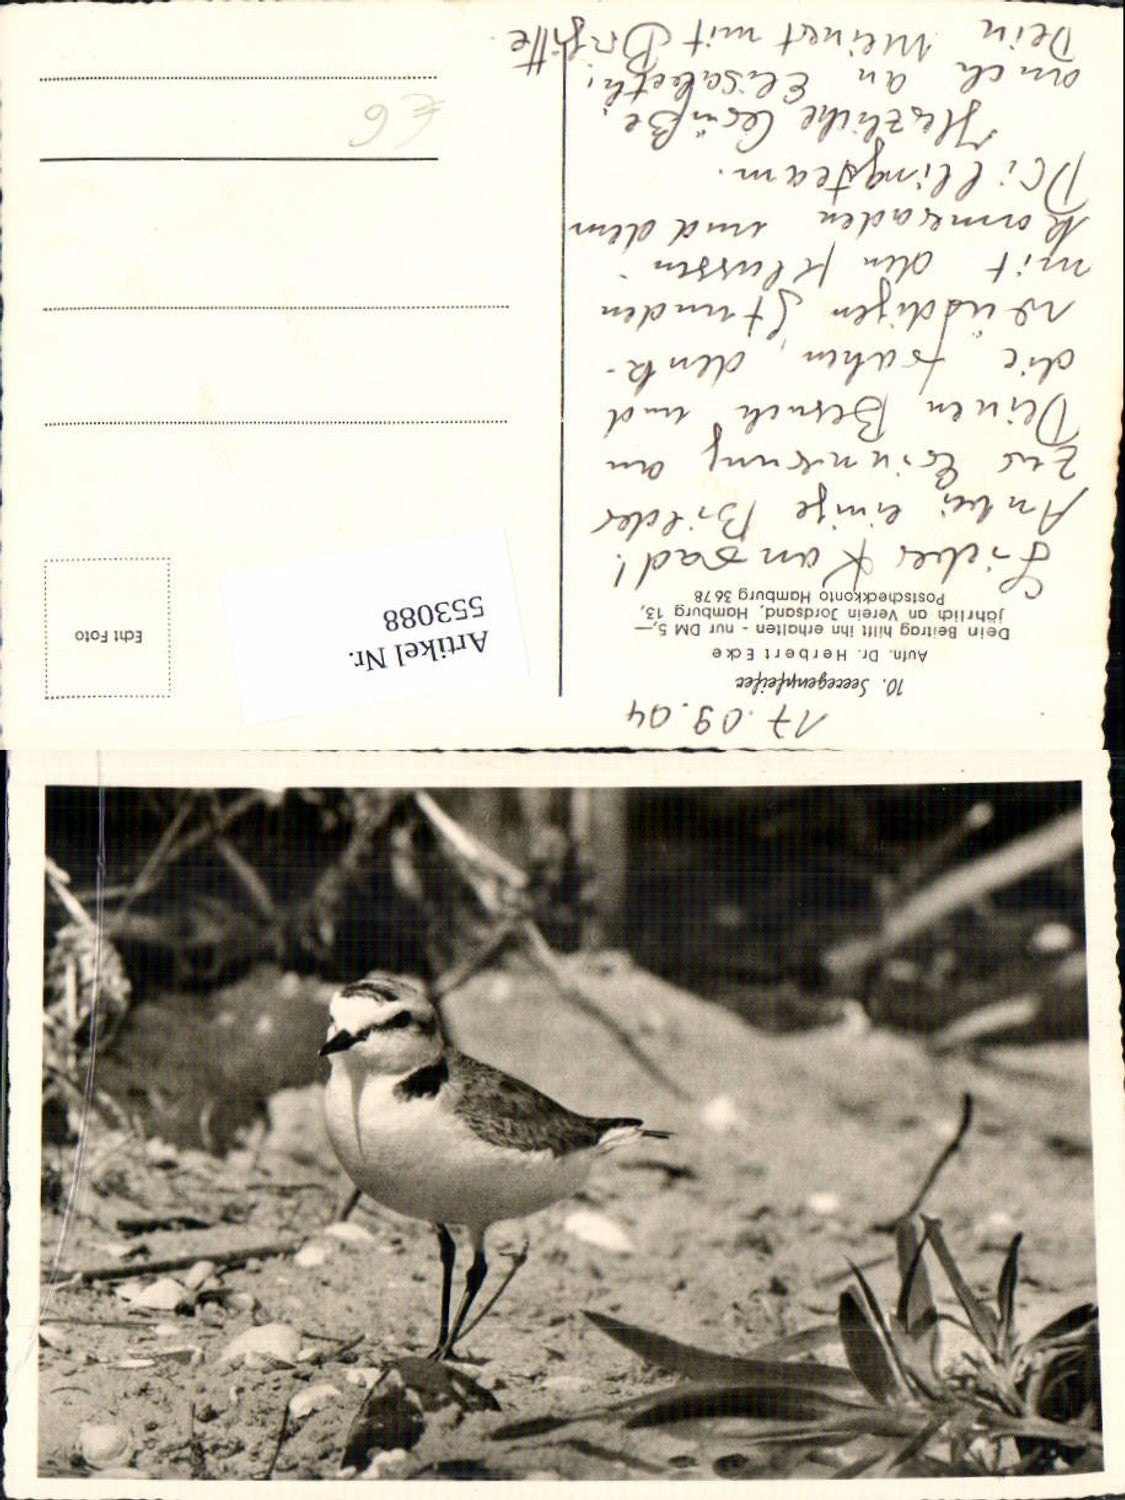 17.09.04
10. Seeregenpfeifer
Aufn. Dr. Herbert Ecke
Dein Beitrag hilft ihn erhalten - nur DM 5,—
jährlich an Verein Jordsand, Hamburg 13,
Postscheckkonto Hamburg 3678
Lieber Konrad!
Anbei einige Bilder
zur Erinnerung an
Deinen Besuch und
die frohen, denk-
würdigen Stunden
mit den Klassen-
kameraden und dem
Drillingsteam.
Herzliche Grüße,
auch an Elisabeth,
Dein Meinert mit Brigitte.
Artikel Nr.
553088
Echt Foto
€6